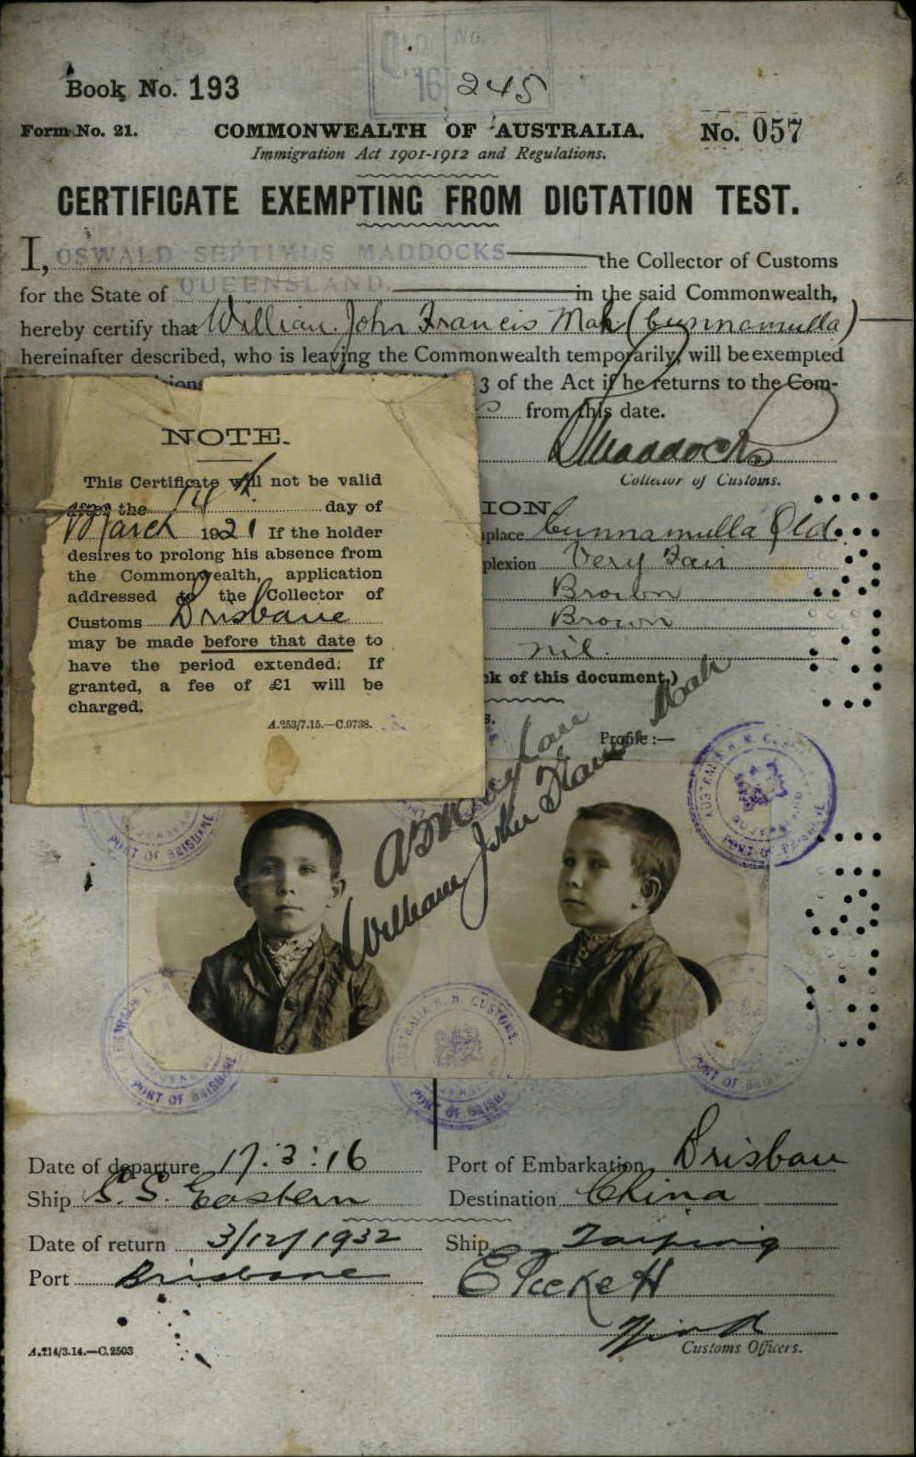 Book No. 193
245
Form No. 21.
COMMONWEALTH OF AUSTRALIA.
No. 057
Immigration Act 1901-1912 and Regulations.
CERTIFICATE EXEMPTING FROM DICTATION TEST.
I, OSWALD SEPTIMUS MADDOCKS the Collector of Customs
for the State of QUEENSLAND. in the said Commonwealth,
hereby certify that William John Francis Mah (Cunnamulla)
hereinafter described, who is leaving the Commonwealth temporarily, will be exempted
3 of the Act if he returns to the Com-
from this date.
Maddocks
Collector of Customs.
NOTE.
This Certificate will not be valid
after the 14th day of
March 1921 If the holder
desires to prolong his absence from
the Commonwealth, application
addressed to the Collector of
Customs Brisbane
may be made before that date to
have the period extended. If
granted, a fee of £1 will be
charged.
A.253/7.15.—C.9738.
ION
place Cunnamulla Qld.
plexion Very Fair
Brown
Brown
nil.
k of this document.)
Profile:—
William John Francis Mah
PORT OF BRISBANE
PORT OF BRISBANE
PORT OF BRISBANE
PORT OF BRISBANE
Date of departure 17.3.16
Port of Embarkation Brisbane
Ship S.S. Eastern
Destination China
Date of return 3/12/1932
Ship Taiping
Port Brisbane
Customs Officers.
A.214/3.14.—C.2503